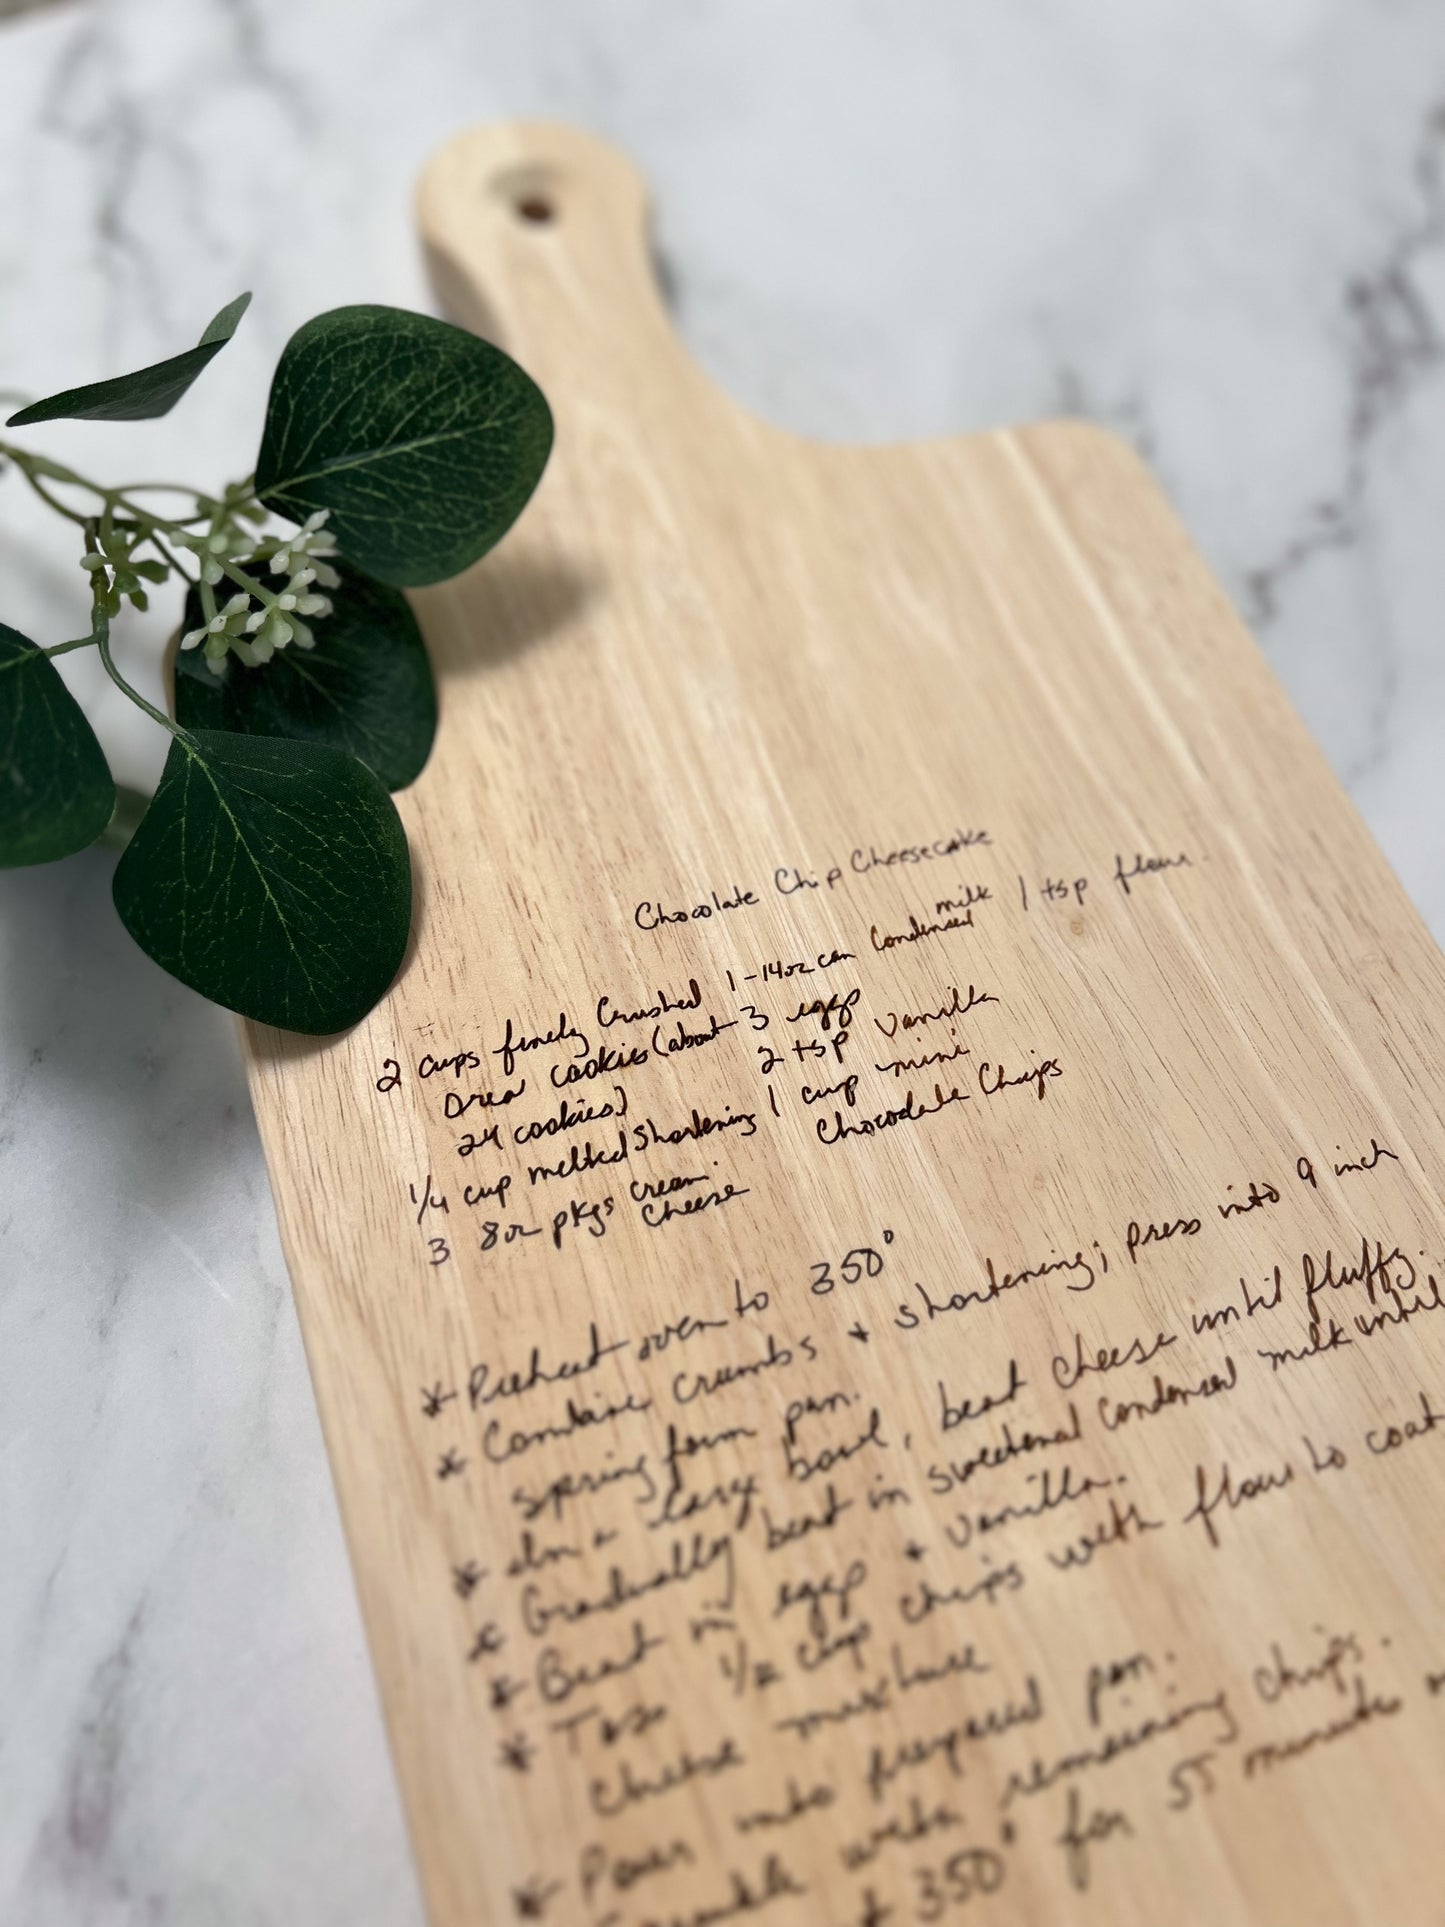 Chocolate Chip Cheesecake
2 cups finely Crushed
Oreo cookies (about
24 cookies)
1/4 cup melted Shortening
3 8oz pkgs cream
Cheese
1-14oz can Condensed milk
3 eggs
2 tsp vanilla
1 cup mini
Chocolate Chips
1 tsp flour
* Preheat oven to 350°
* Combine crumbs + shortening; press into 9 inch
spring form pan.
* In a large bowl, beat cheese until fluffy.
* Gradually beat in sweetened condensed milk until
* Beat in eggs + vanilla.
* Toss 1/2 cup chips with flour to coat
cheese mixture
* Pour into prepared pan.
with remaining chips.
350° for 55 minutes